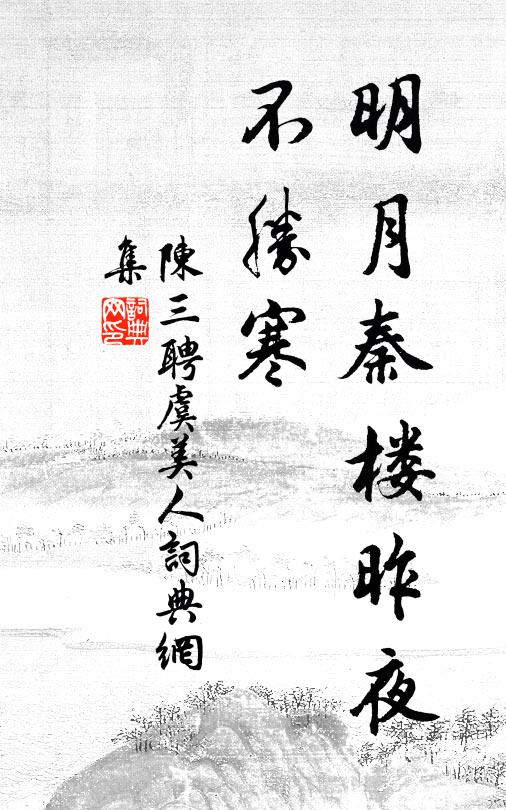 明月秦楼昨夜
不勝寒
陳三聘虞美人詞典網
集
詞典
网印